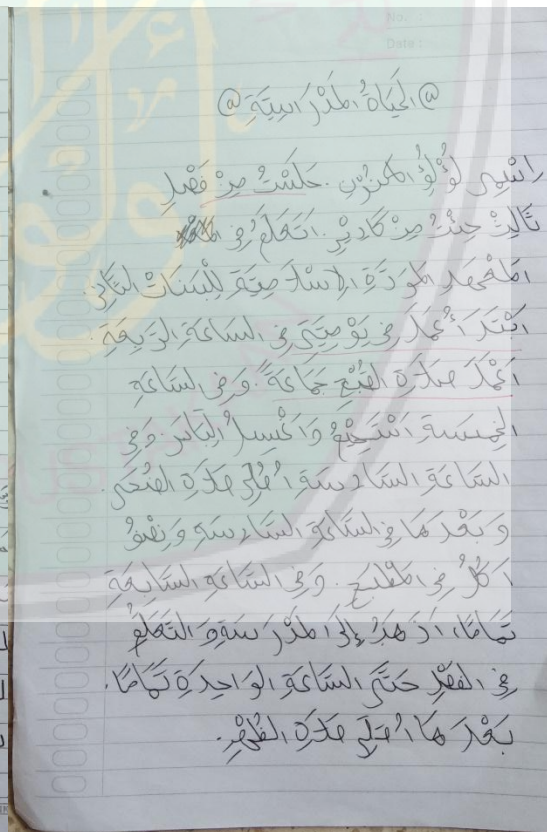 No. :
Date :
@ الحَيَاةُ المَدْرَاسِيَّةِ @
اِسْمِى لُؤْلُؤُ المَكْنُوْنِ. جَلَسْتُ مِنْ فَصْلِ
ثَالِثْ جِئْتُ مِنْ كَادِيْرِ. اَتَعَلَّمُ فِى
المَعْهَدِ المَوَدَّةِ الاِسْلَامِيَّةِ لِلْبَنَاتْ الثَّانِى.
اَبْتَدَ أَعْمَلَ فِى يَوْمِيَّتِى فِى السَّاعَةِ الرَّبِعَةِ.
اَعْمَلَ صَلَاةِ الصُّبْحِ جَمَاعَةً. وَفِى السَّاعَةِ
الخَمِسَةِ اَسْتَحِمُّ وَاَغْسِلُ الِّبَاسَ. وَفِى
السَّاعَةِ السَّادِسَةِ اُصَلِّى صَلَاةِ الضُّحَى.
وَبَعْدَهَا فِى السَّاعَةِ السَّادِسَةِ وَنِصْفُ
اَكُلُ فِى المَطْبَحِ. وَفِى السَّاعَةِ السَّابِعَةِ
تَمَامًا، اَذْهَبُ إِلَى المَدْرَسَةِ وَ التَعَلَّمُ
فِى الفَصْلِ حَتَّى السَّاعَةِ الوَاحِدَةِ تَمَامًا.
بَعْدَهَا اُصَلِّى صَلَاةِ الظُّهْرِ.